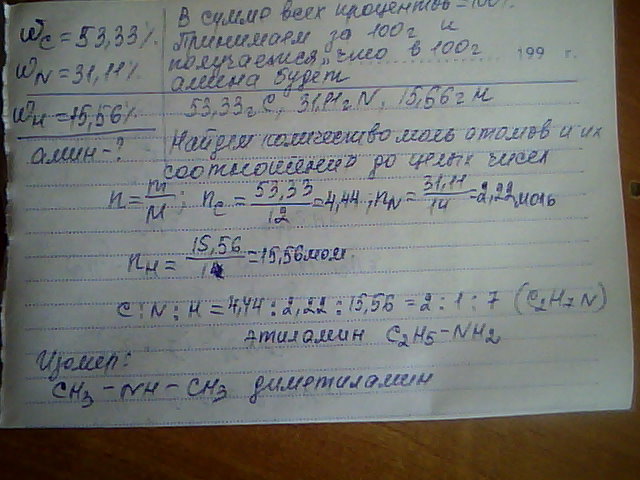 В сумме всех процентов = 100%.
Wc = 53,33%.
Принимаем за 100г и
получается, что в 100г
199 г.
WN = 31,11%.
амина будет
WH = 15,56%
53,33г C, 31,11г N, 15,56г H
амин-?
Найдем количество моль атомов и их
соотношений до целых чисел
n = m/M; nc = 53,33/12 = 4,44; nN = 31,11/14 = 2,22 моль
nH = 15,56/1 = 15,56 мол.
C : N : H = 4,44 : 2,22 : 15,56 = 2 : 1 : 7 (C2H7N)
этиламин C2H5-NH2
Изомер:
CH3 - NH - CH3 диметиламин